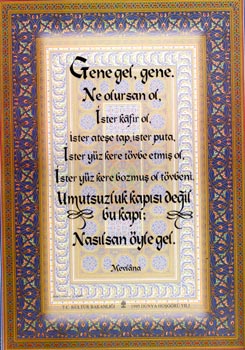 Gene gel, gene.
Ne olursan ol,
İster kâfir ol,
ister ateşe tap, ister puta,
İster yüz kere tövbe etmiş ol,
İster yüz kere bozmuş ol tövbeni.
Umutsuzluk kapısı değil
bu kapı;
Nasılsan öyle gel.
Mevlâna
T.C. KÜLTÜR BAKANLIĞI 1995 DÜNYA HOŞGÖRÜ YILI